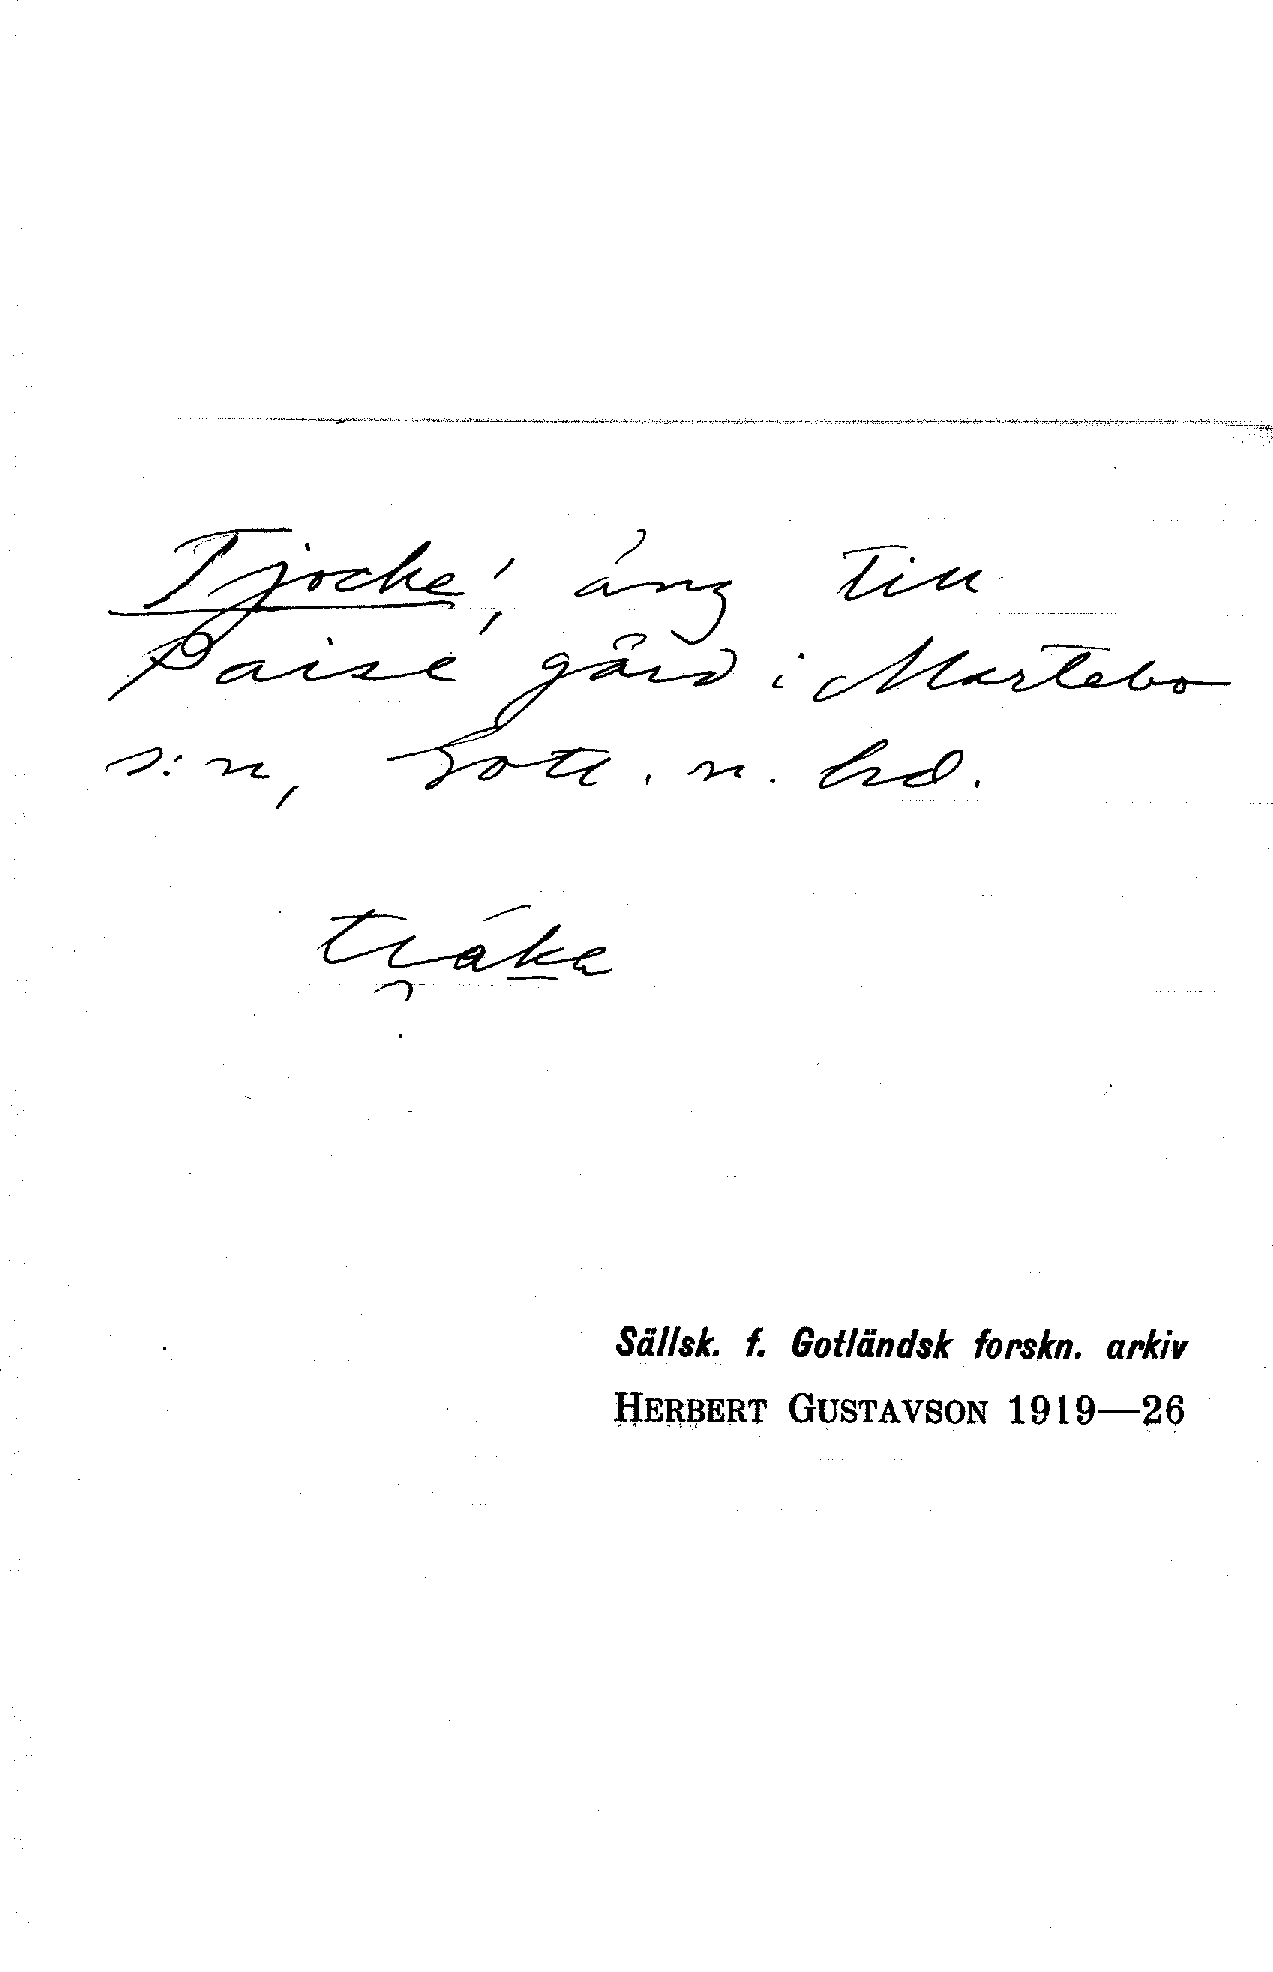 Tjocke', äng till
Paise gård i Martebo
s:n, Gotl. n. hd.
Sällsk. f. Gotländsk forskn. arkiv
HERBERT GUSTAVSON 1919—26